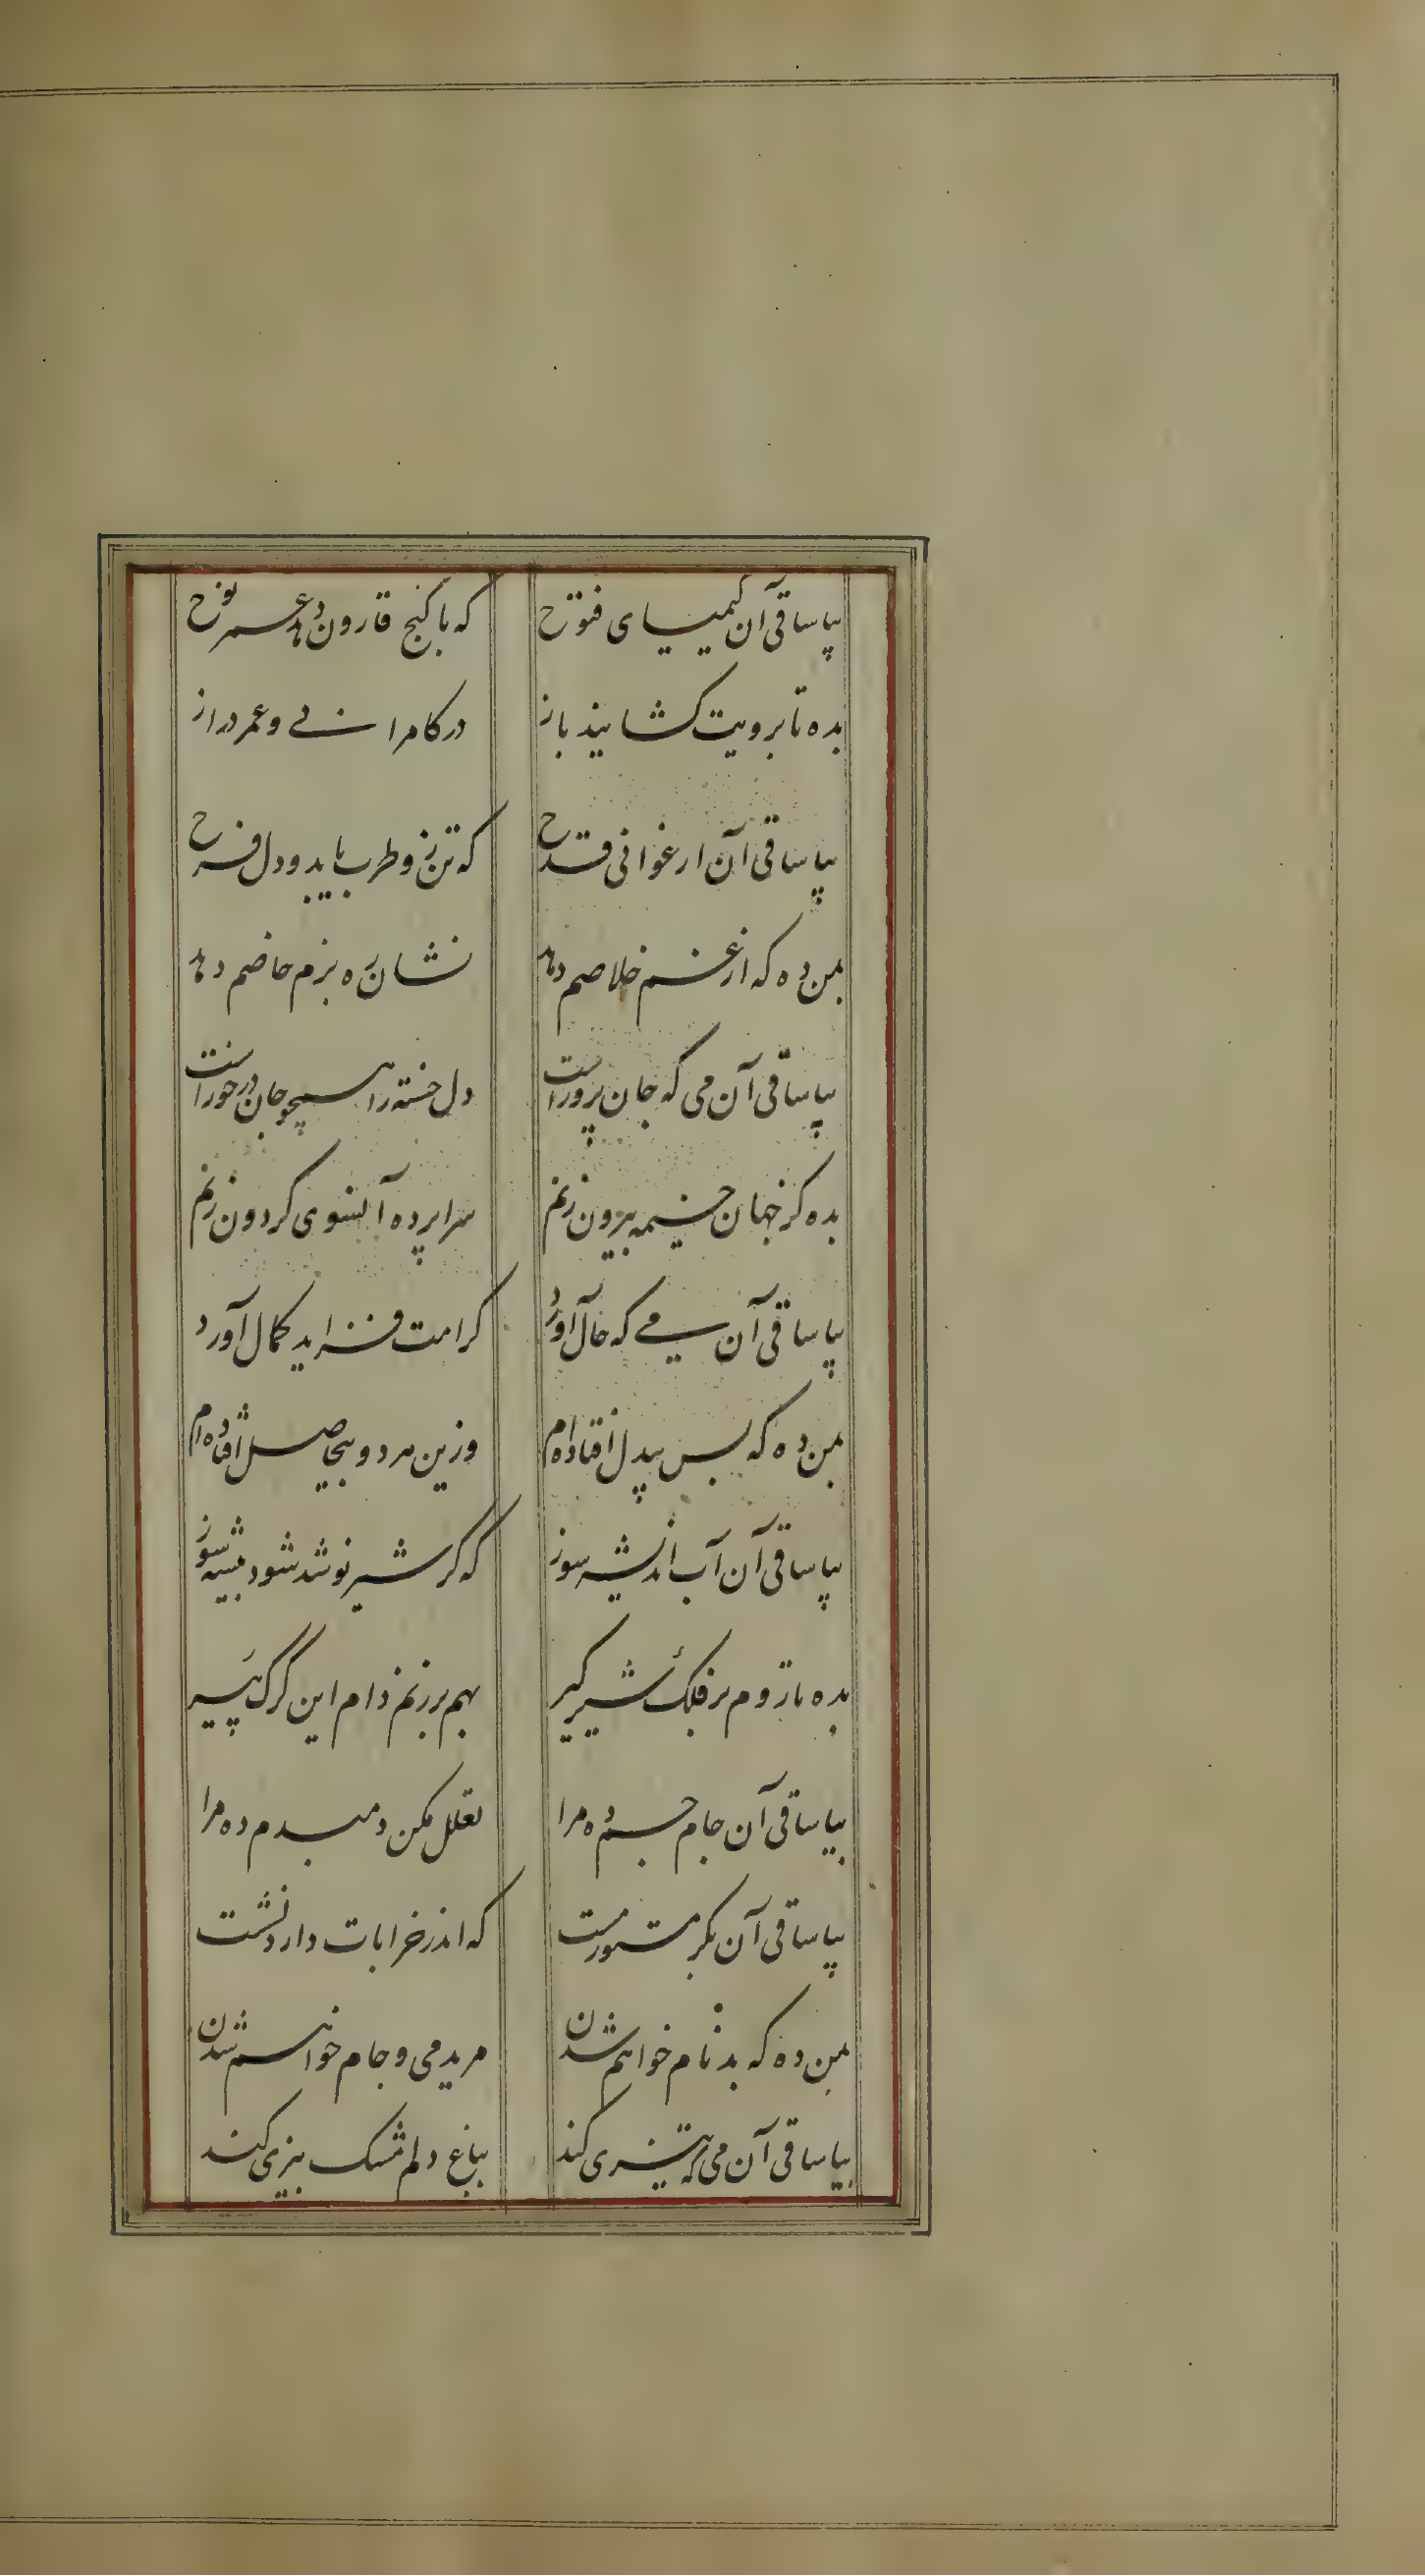 بیا ساقی آن کیمیای فتوح که با گنج قارون دهد عمر نوح
بده تا برویت گشایند باز در کامرانی و عمر دراز
بیا ساقی آن ارغوانی قدح که تن زو طرب یابد و دل فرح
بمن ده که از غم خلاصم دهد نشان ره بزم خاصم دهد
بیا ساقی آن می که جان پرورست دل خسته را همچو جان درخورست
بده کز جهان خیمه بیرون زنم سراپرده آنسوی گردون زنم
بیا ساقی آن می که حال آورد کرامت فزاید کمال آورد
بمن ده که بس بیدل افتاده‌ام وزین هر دو بیحاصل افتاده‌ام
بیا ساقی آن آب اندیشه سوز که گر شیر نوشد شود بیشه سوز
بده تا روم بر فلک شیر گیر بهم بر زنم دام این گرگ پیر
بیا ساقی آن جام جم ده مرا تعلل مکن دمبدم ده مرا
بیا ساقی آن بکر مستور مست که اندر خرابات دارد نشست
بمن ده که بدنام خواهم شدن مرید می و جام خواهم شدن
بیا ساقی آن می که تیزی کند بباغ دلم مشک بیزی کند